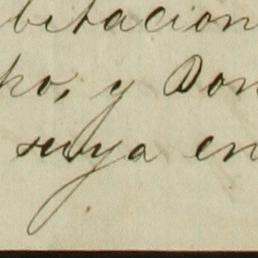 bitacion
ho, y Don
suya en